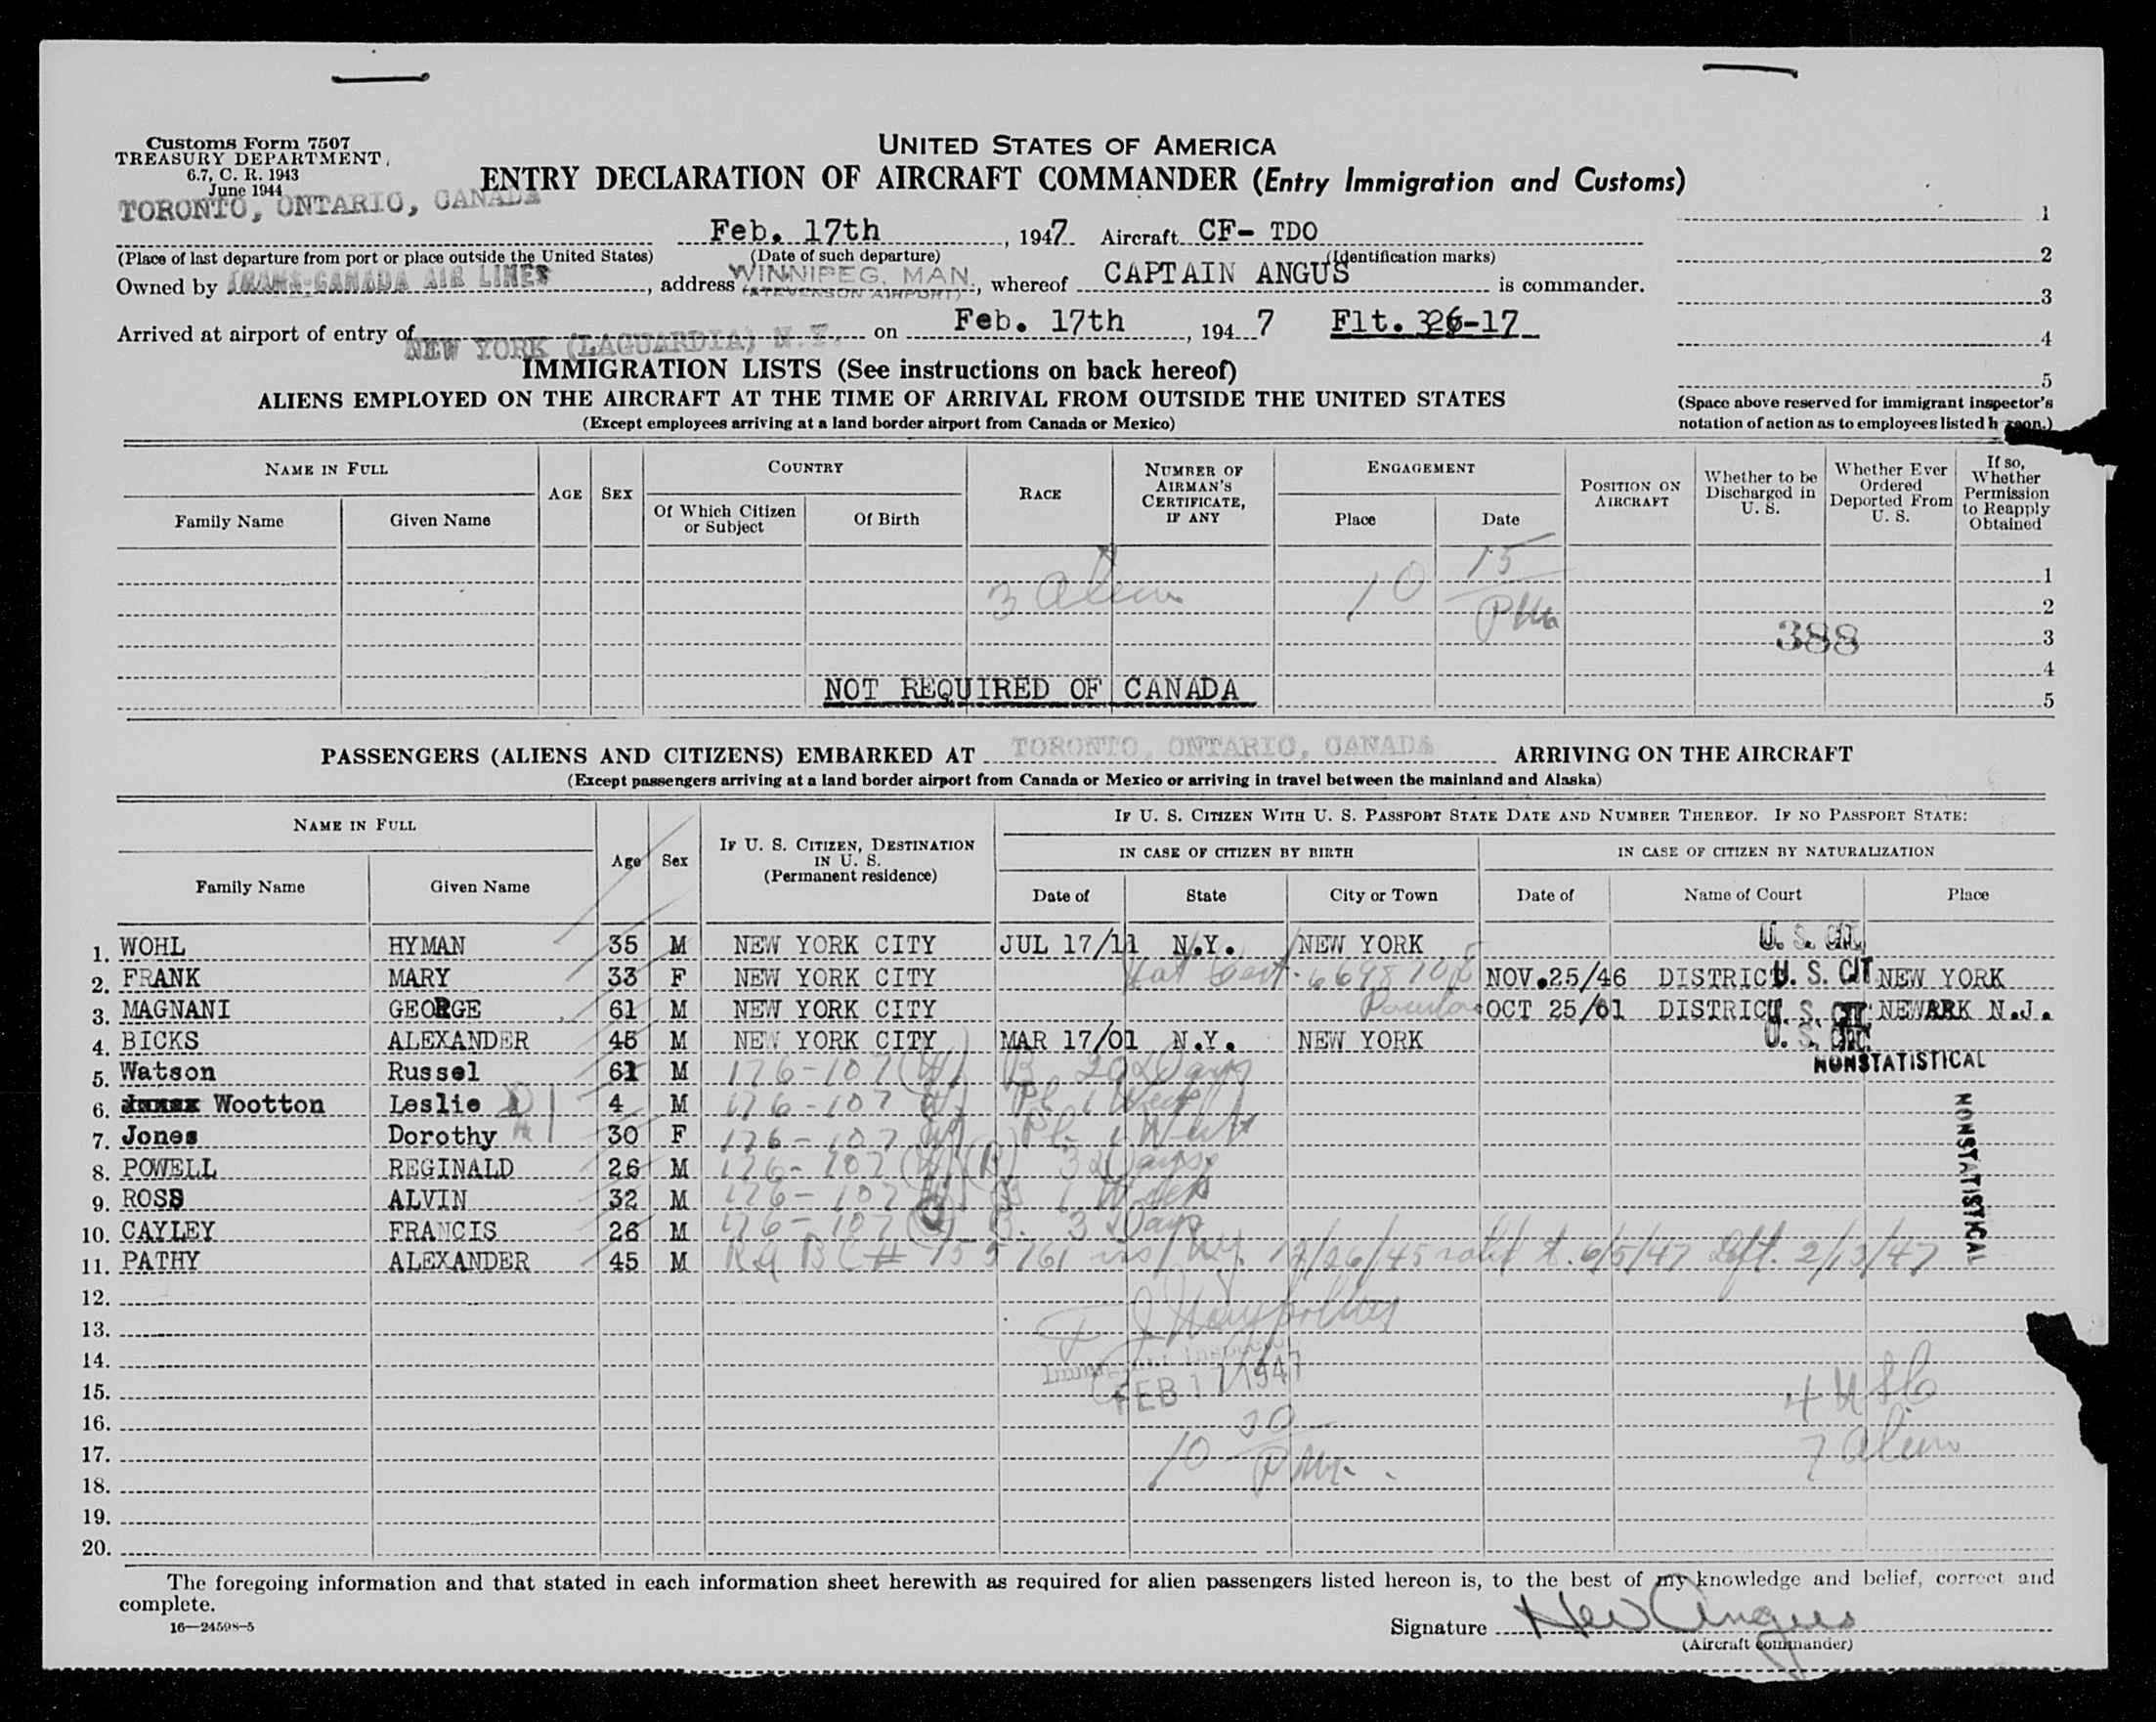 Customs Form 7507
TREASURY DEPARTMENT
6.7, C. R. 1943
June 1944
UNITED STATES OF AMERICA
ENTRY DECLARATION OF AIRCRAFT COMMANDER (Entry Immigration and Customs)
TORONTO, ONTARIO, CANADA
Feb. 17th, 1947 Aircraft CF- TDO
(Place of last departure from port or place outside the United States) (Date of such departure) (Identification marks)
Owned by TRANS-CANADA AIR LINES, address WINNIPEG, MAN. (STEVENSON AIRPORT), whereof CAPTAIN ANGUS is commander.
Arrived at airport of entry of NEW YORK (LAGUARDIA) N.Y. on Feb. 17th, 1947 Flt. 326-17
1
2
3
4
5
IMMIGRATION LISTS (See instructions on back hereof)
ALIENS EMPLOYED ON THE AIRCRAFT AT THE TIME OF ARRIVAL FROM OUTSIDE THE UNITED STATES
(Except employees arriving at a land border airport from Canada or Mexico)
(Space above reserved for immigrant inspector's
notation of action as to employees listed
NAME IN FULL
Family Name Given Name
AGE SEX
COUNTRY
Of Which Citizen or Subject Of Birth
RACE
NUMBER OF AIRMAN'S CERTIFICATE, IF ANY
ENGAGEMENT
Place Date
POSITION ON AIRCRAFT
Whether to be Discharged in U. S.
Whether Ever Ordered Deported From U. S.
If so, Whether Permission to Reapply Obtained
3 alien 10 15 PM
1
2
388 3
4
NOT REQUIRED OF CANADA 5
PASSENGERS (ALIENS AND CITIZENS) EMBARKED AT TORONTO, ONTARIO, CANADA ARRIVING ON THE AIRCRAFT
(Except passengers arriving at a land border airport from Canada or Mexico or arriving in travel between the mainland and Alaska)
NAME IN FULL
Family Name Given Name
Age Sex
IF U. S. CITIZEN, DESTINATION IN U. S. (Permanent residence)
IF U. S. CITIZEN WITH U. S. PASSPORT STATE DATE AND NUMBER THEREOF. IF NO PASSPORT STATE:
IN CASE OF CITIZEN BY BIRTH IN CASE OF CITIZEN BY NATURALIZATION
Date of State City or Town Date of Name of Court Place
1. WOHL HYMAN 35 M NEW YORK CITY JUL 17/11 N.Y. NEW YORK U. S. CIT.
2. FRANK MARY 33 F NEW YORK CITY Nat Cert. NOV.25/46 DISTRICT U. S. CIT NEW YORK
3. MAGNANI GEORGE 61 M NEW YORK CITY OCT 25/61 DISTRICT U. S. CIT NEWARK N.J.
4. BICKS ALEXANDER 45 M NEW YORK CITY MAR 17/01 N.Y. NEW YORK U. S. CIT.
5. Watson Russel 61 M 176-107 (W) B 20 Days NONSTATISTICAL
6. Wootton Leslie 4 M 176-107 (W) Pl. 1 Week
7. Jones Dorothy 30 F 176-107 (W) Pl. 1 Week
8. POWELL REGINALD 26 M 176-107 (W) (B) 3 Days
9. ROSS ALVIN 32 M 176-107 B 1 Week
10. CAYLEY FRANCIS 26 M 176-107 B. 3 Days
11. PATHY ALEXANDER 45 M BC# 155761 12/26/45 6/5/47 Dept. 2/13/47
NONSTATISTICAL
12.
13.
14.
Immigrant Inspector
FEB 17 1947
15. 4 USC
16.
10 30 PM.
17. 7 alien
18.
19.
20.
The foregoing information and that stated in each information sheet herewith as required for alien passengers listed hereon is, to the best of my knowledge and belief, correct and
complete.
16—24598-5
Signature Angus
(Aircraft commander)